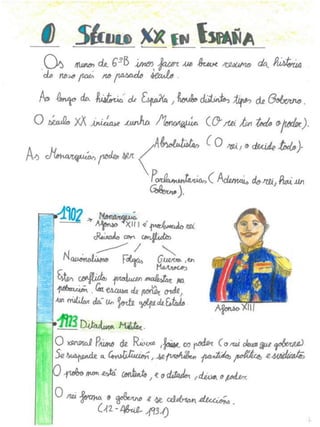 O SÉCULO XX EN ESPAÑA
Os nenos de 6ºB imos facer un breve resumo da historia
do noso país no pasado século.
Ao longo da historia de España, houbo distintos tipos de Goberno.
O século XX iníciase cunha Monarquía (O rei tin todo o poder).
As Monarquías poden ser
Absolutistas (O rei, o decide todo).
Parlamentarias (Ademais do rei, hai un
Goberno).
1902
Monarquía
Alfonso XIII é proclamado rei
Reinado con conflictos
Nacionalismo Folgas Guerra en
Marrocos
Estes conflictos producen malestar na
poboación. Con escusa de poñer orde,
un militar dá un forte golpe de Estado
Alfonso XIII
1923 Dictadura Militar.
O xeneral Primo de Rivera, faise co poder (o rei deixa que goberne)
Se suspende a Constitución, se prohíben partidos políticos e sindicatos
O pobo non está contento, e o ditador, deixa o poder
O rei forma o goberno e se celebran eleccións.
(12-Abril-1931)